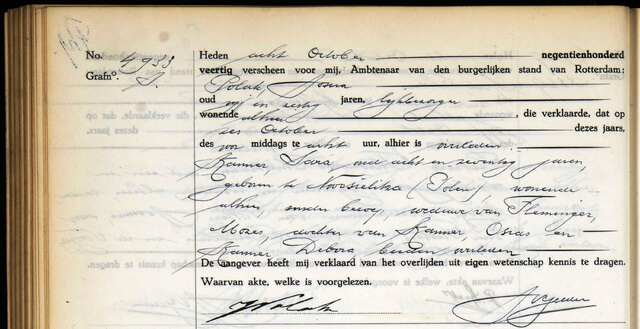 No. 4983
Grafn°.
Heden acht October negentienhonderd
veertig verscheen voor mij, Ambtenaar van den burgerlijken stand van Rotterdam:
Polak, Josua
oud vijf en zestig jaren, lijkbezorger
wonende alhier, die verklaarde, dat op
zes October dezes jaars,
des voor middags te acht uur, alhier is overleden:
Kanner, Sara, oud acht en zeventig jaren,
geboren te (Polen), wonende
alhier, zonder beroep, weduwe van Fleminger,
Mozes, dochter van Kanner, Osias en
Kanner, Debora, beiden overleden
De aangever heeft mij verklaard van het overlijden uit eigen wetenschap kennis te dragen.
Waarvan akte, welke is voorgelezen.
J Polak